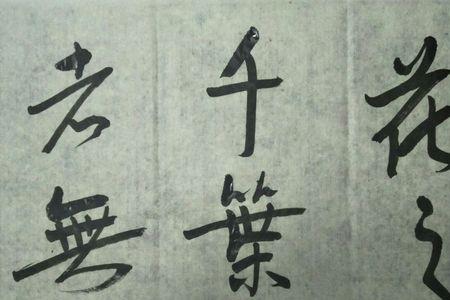 花之
千葉
者無